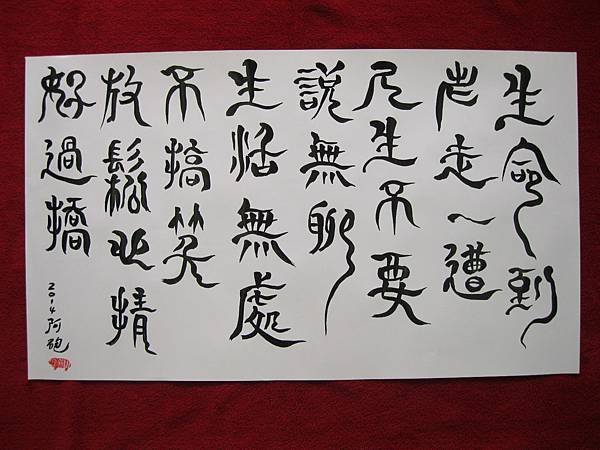 生命到
此走一遭
生不要
說無聊
生活無處
不搞笑
放鬆心情
好過橋
2014 阿砲